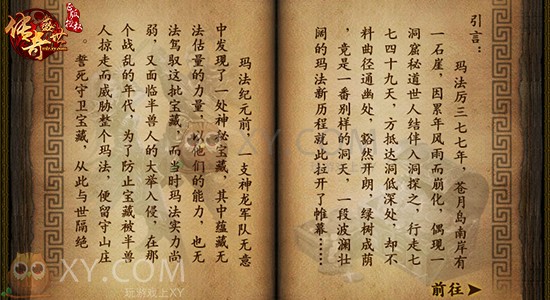 正版授权
传奇盛世
引言：
玛法厉三七七年，苍月岛南岸有
一石崖，因累年风雨而崩化，偶现一
洞窟秘道世人结伴入洞探之，行走七
七四十九天，方抵达洞低深处，却不
料曲径通幽处，豁然开朗，绿树成荫
，竟是一番别样的洞天，一段波澜壮
阔的玛法新历程就此拉开了帷幕……
前往
玛法纪元前，一支神龙军队无意
中发现了一处神秘宝藏，其中蕴藏无
法估量的力量，以他们的能力，也无
法驾驭这批宝藏，而当时玛法实力尚
弱，又面临半兽人的大举入侵，在那
个战乱的年代，为了防止宝藏被半兽
人掠走而威胁整个玛法，便留守山庄
，誓死守卫宝藏，从此与世隔绝
XY.COM
XY.COM
玩游戏上XY